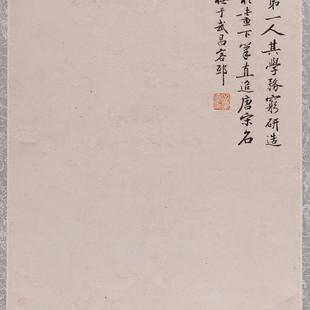 第一人其學務窮研造
於未畫下筆直追唐宋名
於武昌客邸